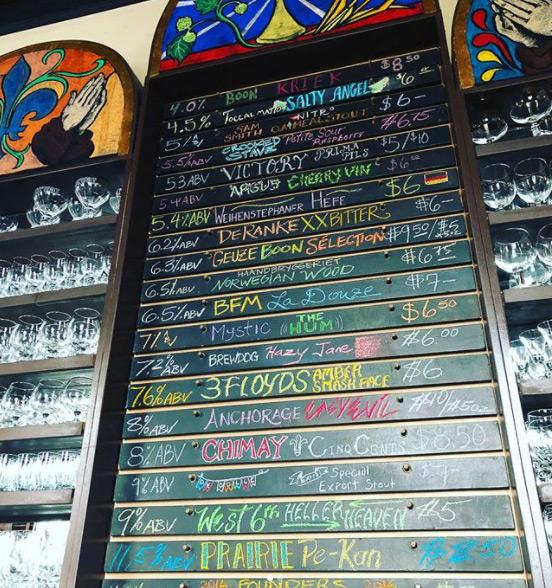 4.0% BOON KRIEK $8.50
4.5% TOCCALMATTO SALTY ANGEL $6
5/% SAM SMITH NITRO OATMEAL STOUT $6-
5.5%ABV CROOKED STAVE PETITE SOUR RASPBERRY $6.75
5.3 ABV VICTORY PRIMA PILS $5/$10
5.4 ABV ARGUS CHERRY VIN $6
5.4%ABV WEIHENSTEPHANER HEFE $6
6.2%ABV DERANKE XXBITTER $6-
6.3%ABV GEUZE BOON SÉLECTION $9.50/
6.5%ABV HAANDBRYGGERIET NORWEGIAN WOOD $6.75
6.5%ABV BFM La Douze $7-
7% MYSTIC THE HUM $6.50
7.2%ABV BREWDOG Hazy Jane $6.00
7.6%ABV 3 FLOYDS AMBER SMASH FACE $6
8%ABV ANCHORAGE $10/
8%ABV CHIMAY CINQ CENTS $8.50
9%ABV Special Export Stout $7-
9%ABV West 6th HELLER HEAVEN $5
11.5%ABV PRAIRIE Pe-Kan
2016 FOUNDERS 2016